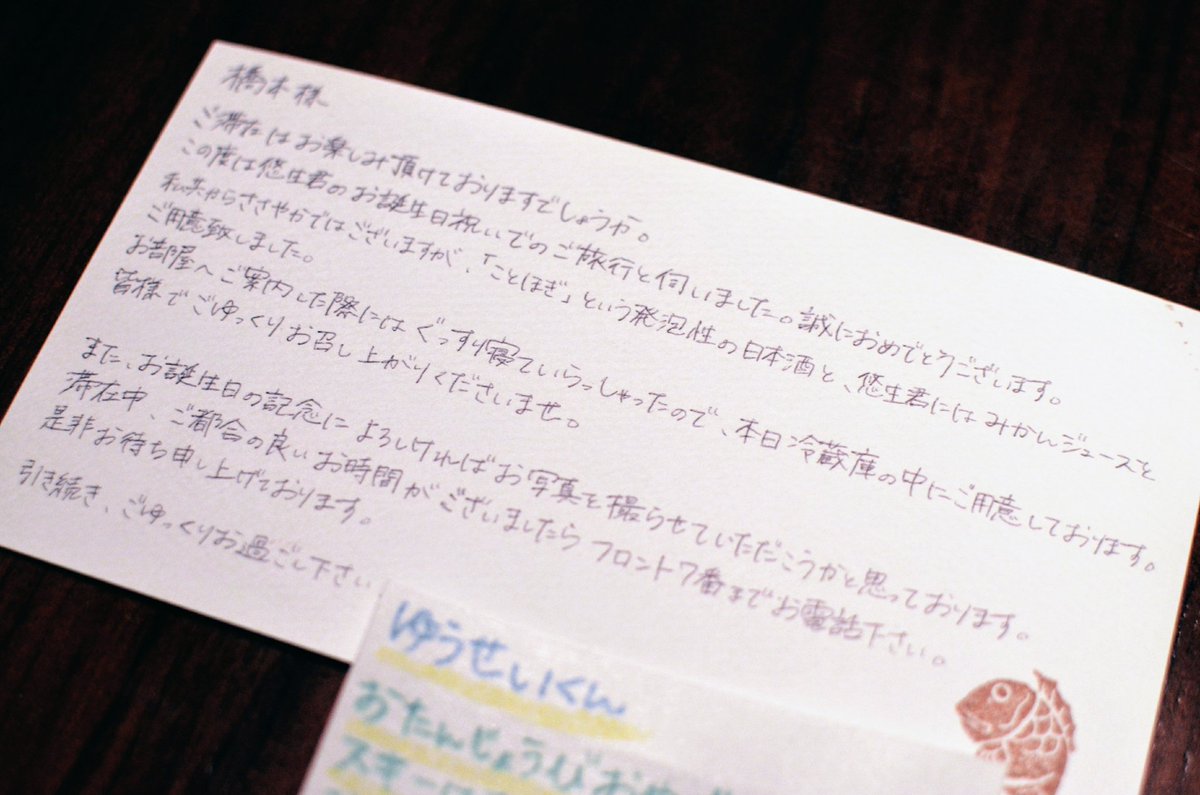 橋本様
ご滞在はお楽しみ頂けておりますでしょうか。
この度は悠生君のお誕生日祝いでのご旅行と伺いました。誠におめでとうございます。
私共からささやかではございますが、「ことほぎ」という発泡性の日本酒と、悠生君にはみかんジュースを
ご用意致しました。
お部屋へご案内した際にはぐっすり寝ていらっしゃったので、本日冷蔵庫の中にご用意しております。
皆様でごゆっくりお召し上がりくださいませ。
また、お誕生日の記念によろしければお写真を撮らせていただこうかと思っております。
滞在中、ご都合の良いお時間がございましたらフロント7番までお電話下さい。
是非お待ち申し上げております。
引き続き、ごゆっくりお過ごし下さい
ゆうせいくん
おたんじょうびお
スキー